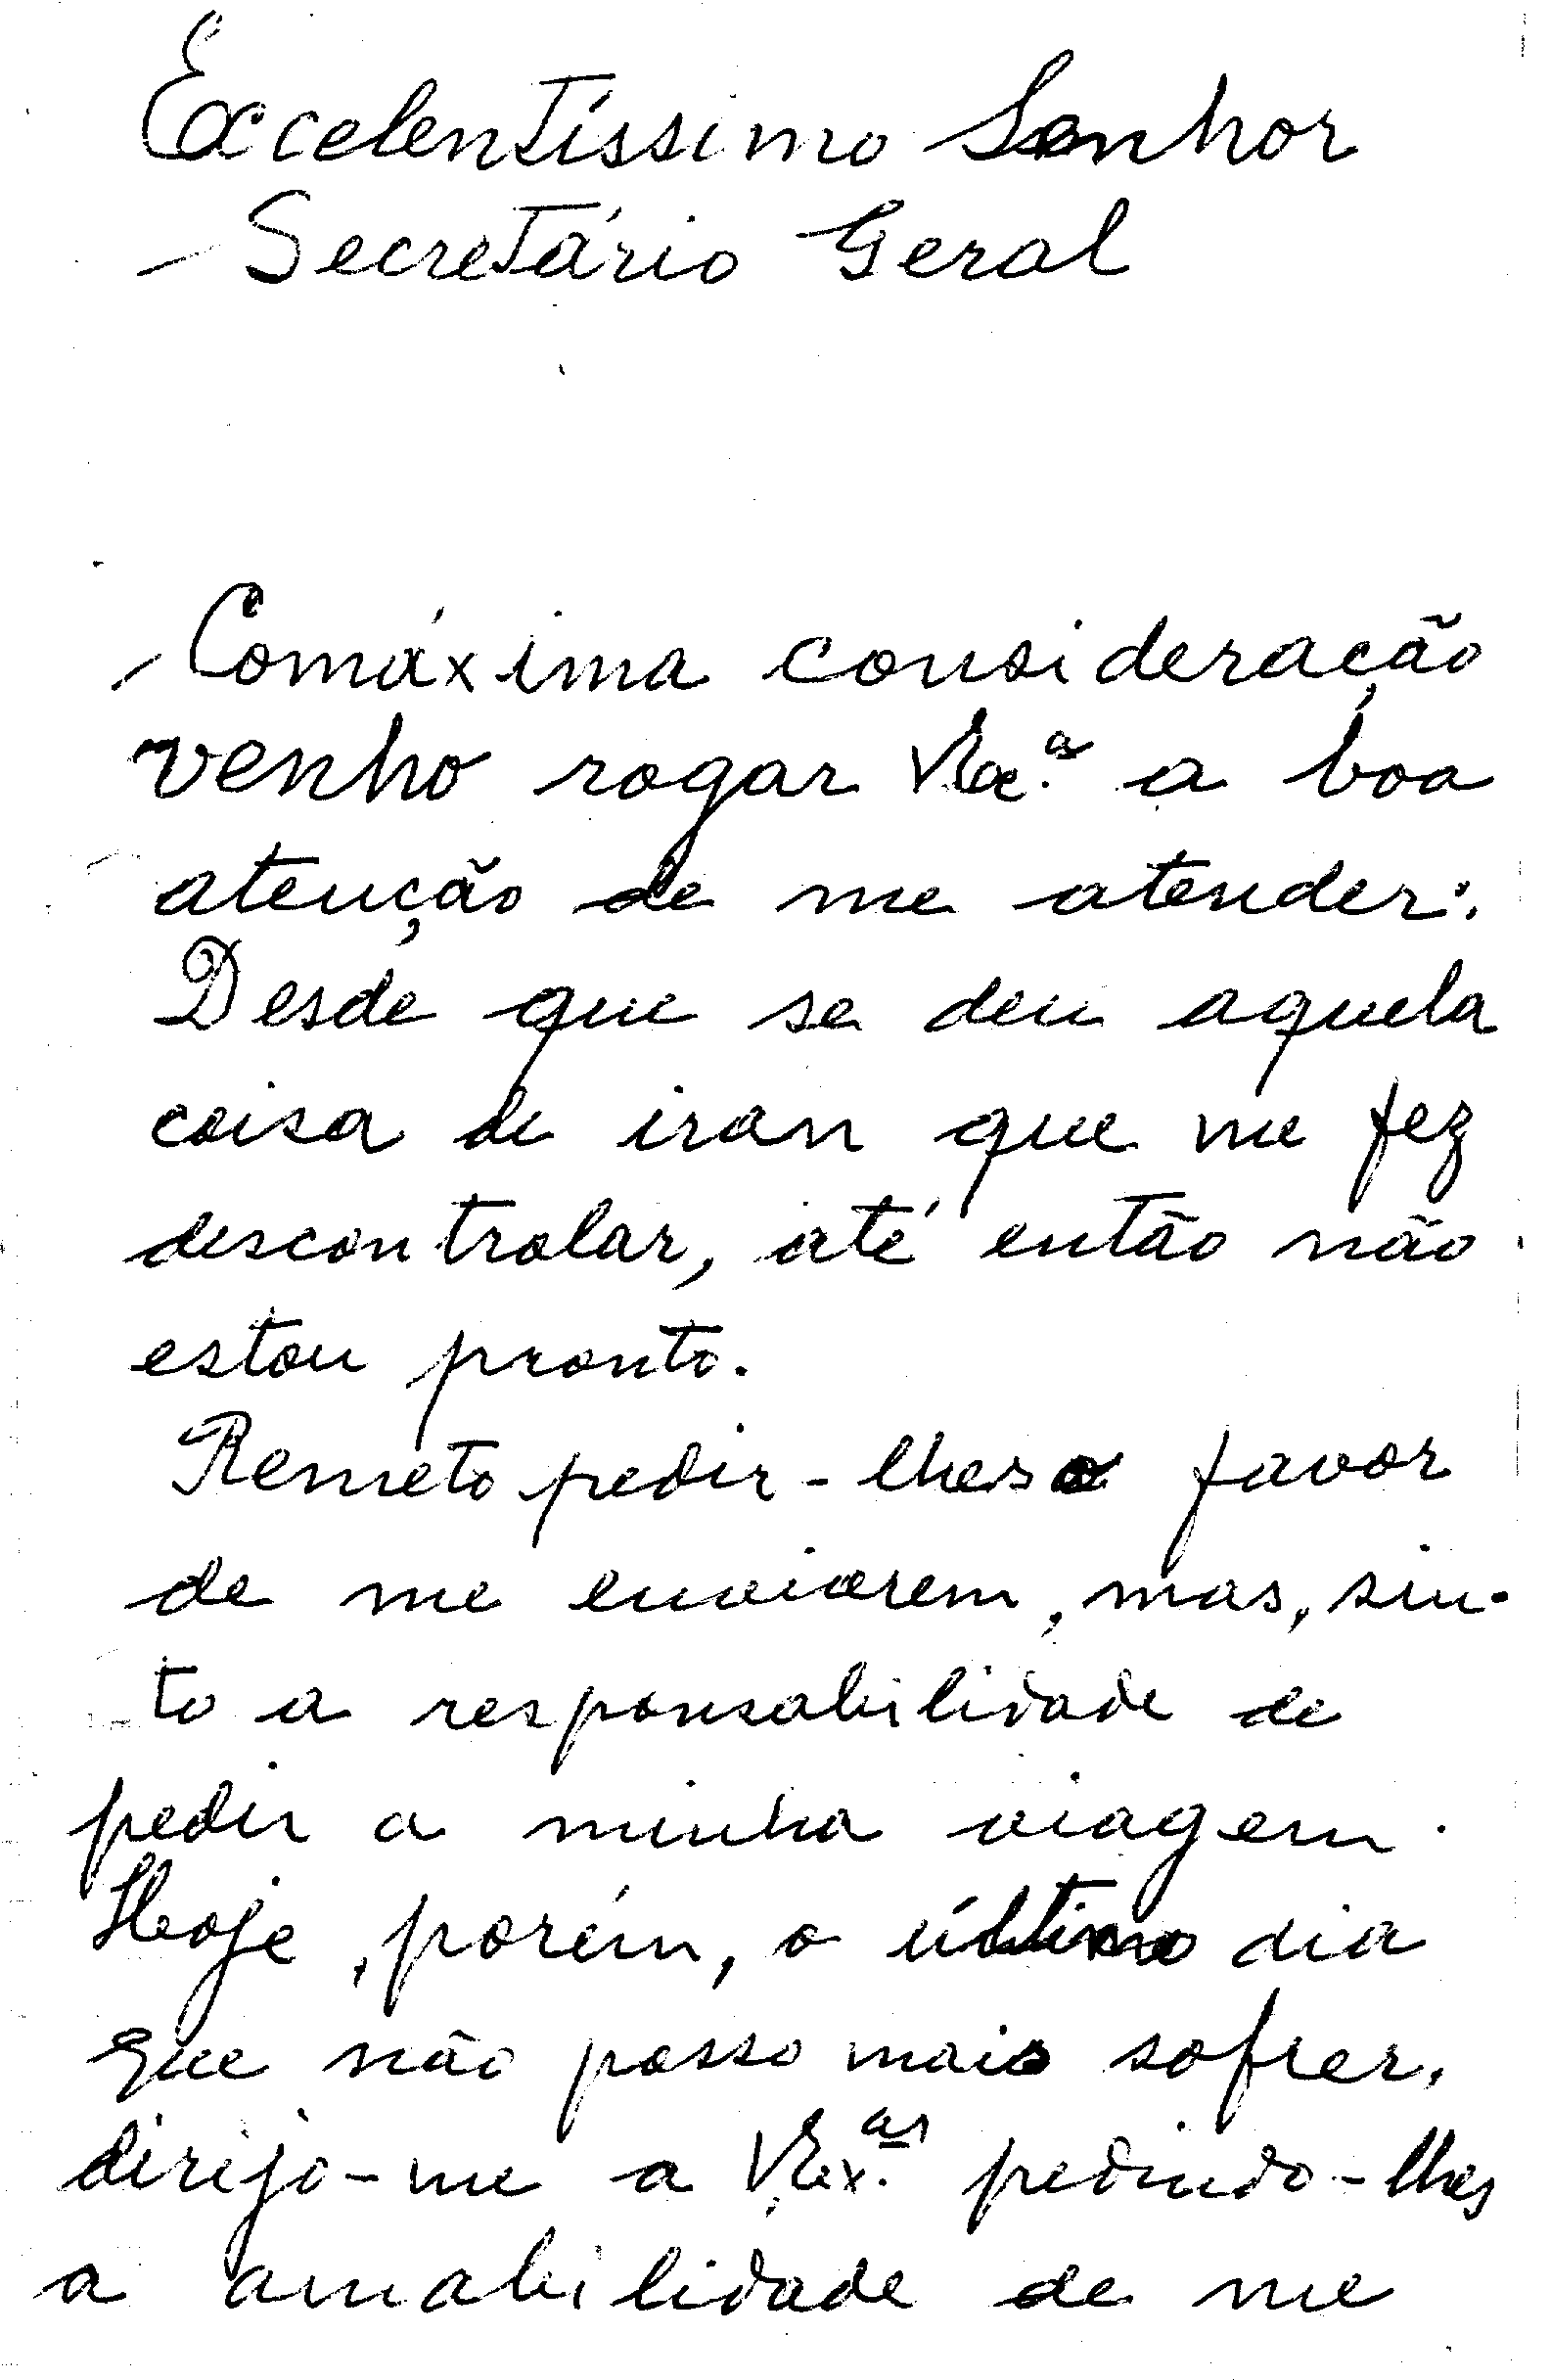 Excelentíssimo Senhor
- Secretário Geral
- Comáxima consideração
venho rogar V.Ex.ª a boa
atenção de me atender:
Desde que se deu aquela
coisa de iran que me fez
descontrolar, até então não
estou pronto.
Remeto pedir-lhes o favor
de me enviarem, mas, sin-
to a responsabilidade de
pedir a minha viagem.
Hoje, porém, o último dia
que não posso mais sofrer,
dirijo-me a V.Ex.ªs pedindo-lhes
a amabilidade de me